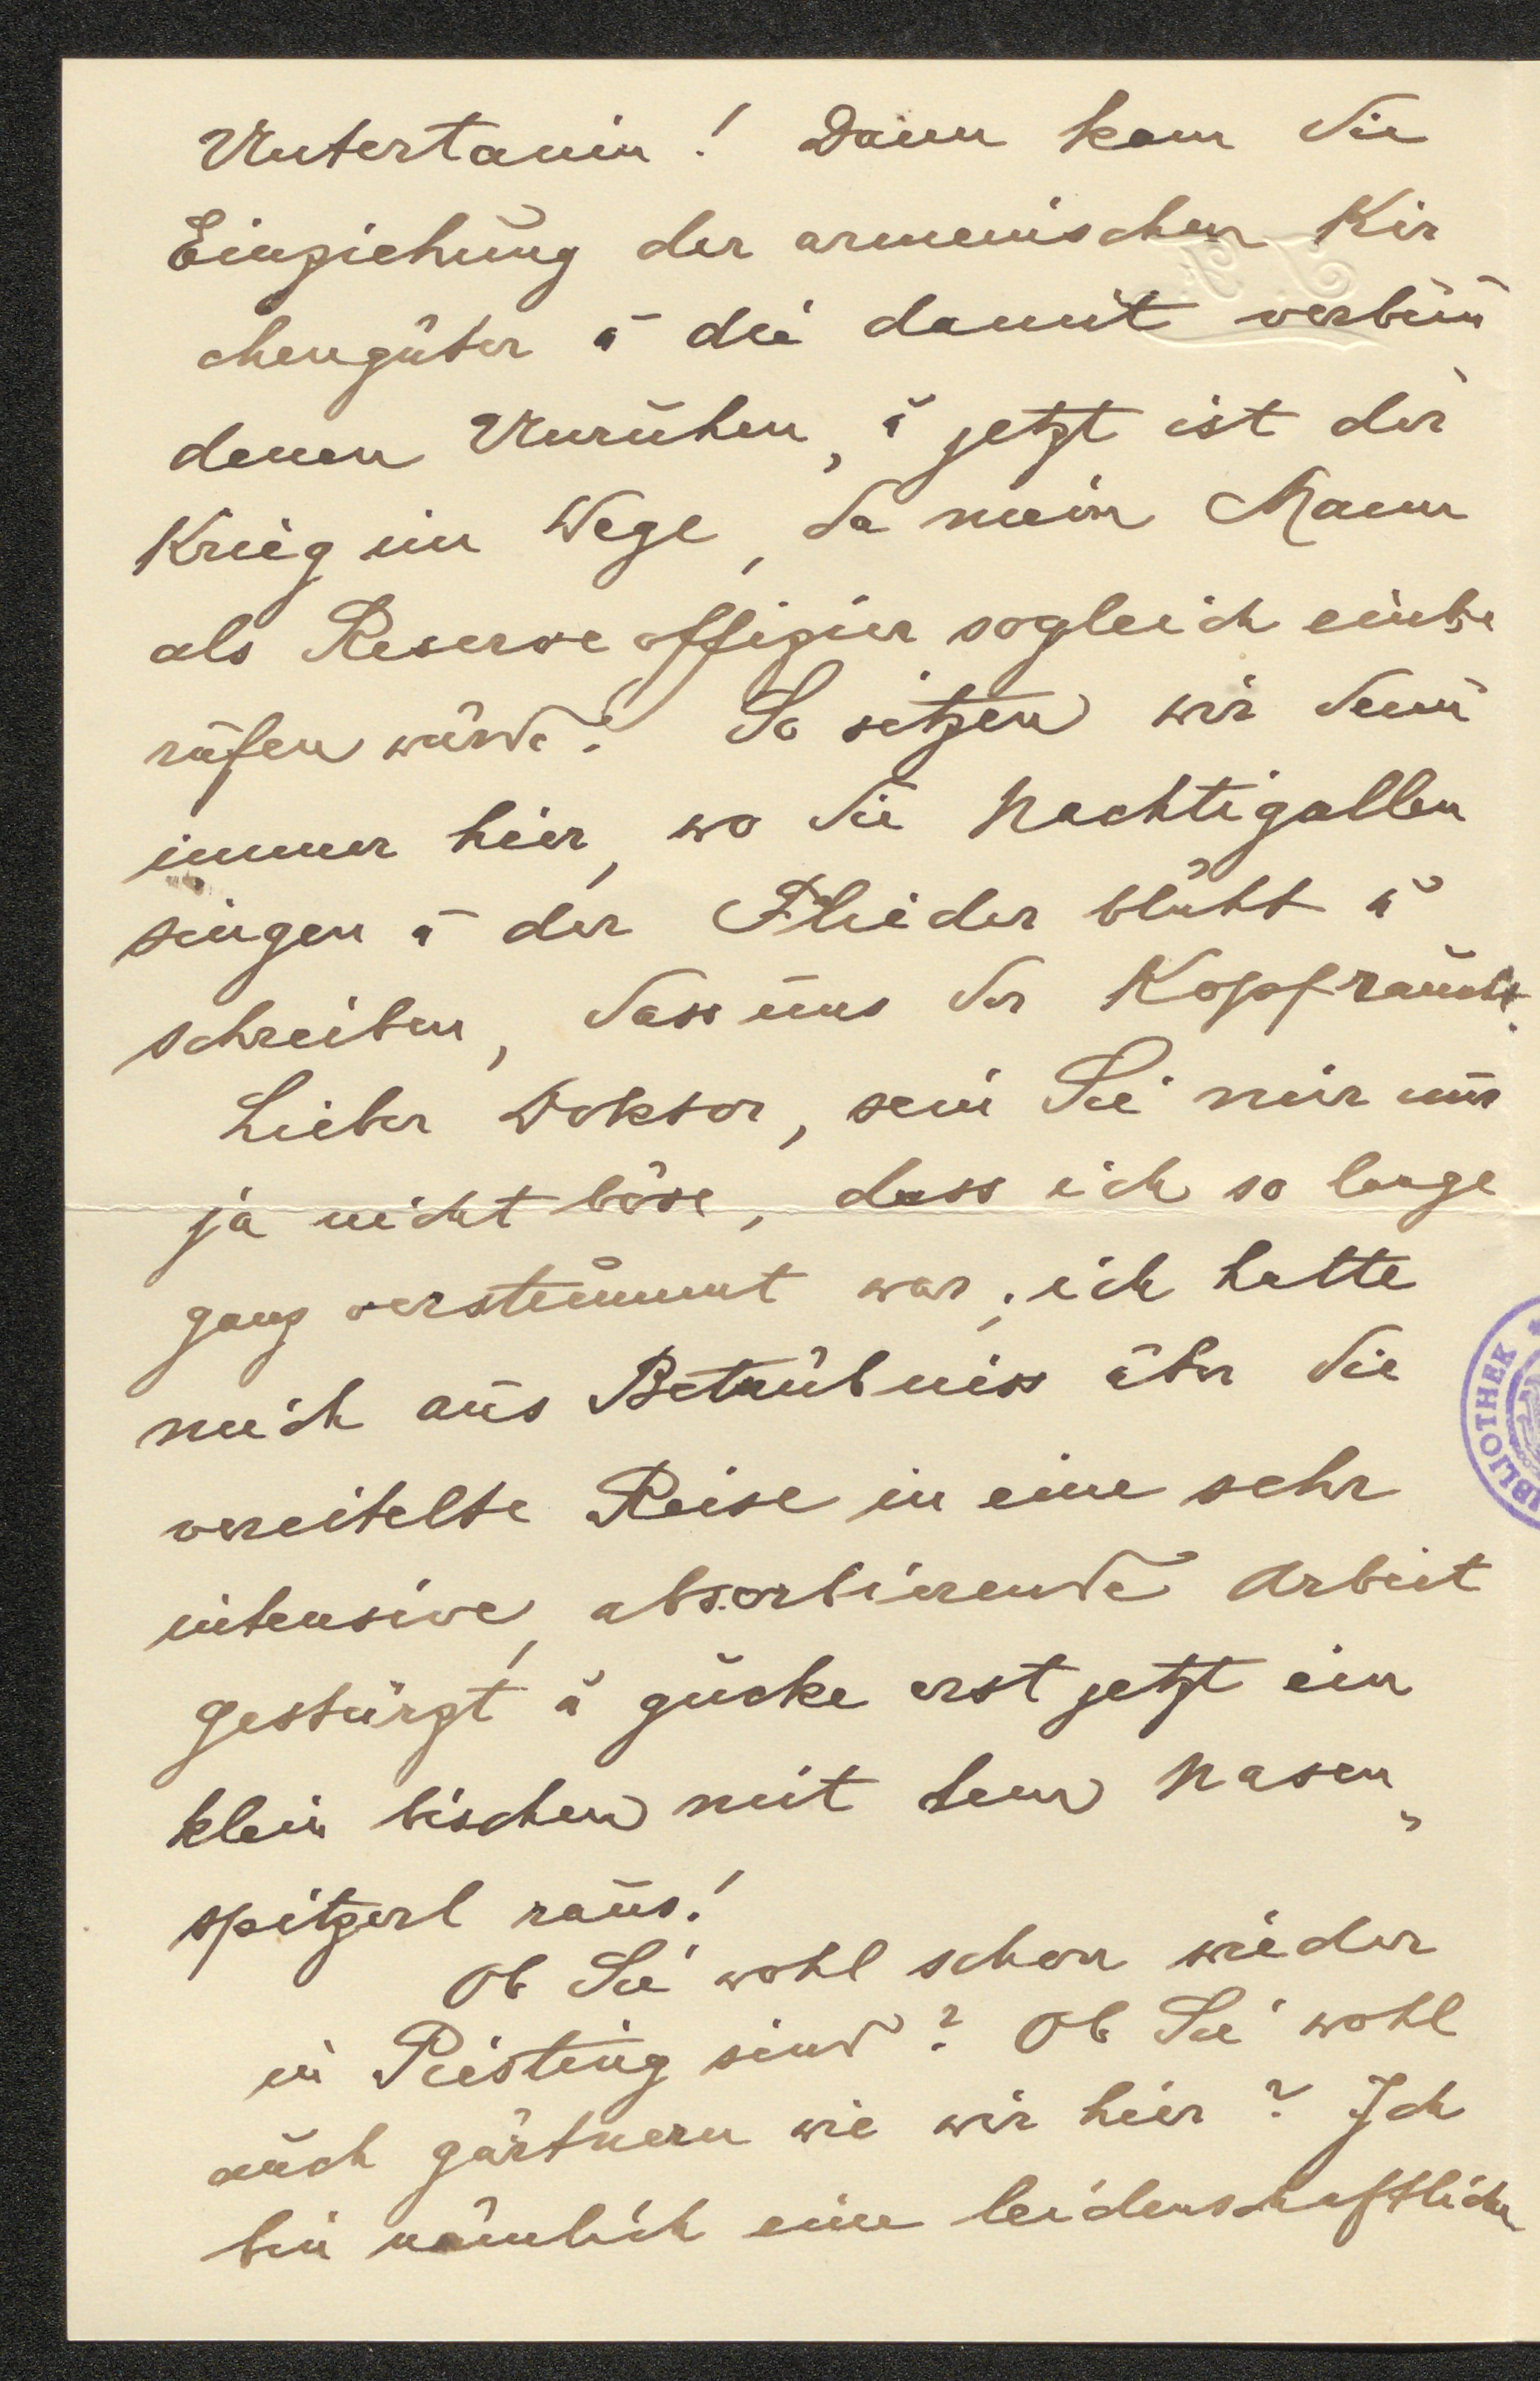 Untertanin! Dann kam die
Einziehung der armenischen Kir
chengüter u die damit verbun
denen Unruhen, u jetzt ist der
Krieg im Wege, da mein Mann
als Reserveoffizier sogleich einbe
rufen würde! So sitzen wir denn
immer hier, wo die Nachtigallen
singen u der Flieder blüht u
schreiben, dass uns der Kopf raucht.
Lieber Doktor, sein Sie mir nur
ja nicht böse, dass ich so lange
ganz verstummt war; ich hatte
mich aus Betrübniss über die
vereitelte Reise in eine sehr
intensive, absorbierende Arbeit
gestürzt u gucke erst jetzt ein
klein bischen mit dem Nasen„
spitzerl raus!
Ob Sie wohl schon wieder
in Piesting sind? Ob Sie wohl
auch gärtnern wie wir hier? Ich
bin nämlich eine leidenschaftliche
BIBLIOTHEK